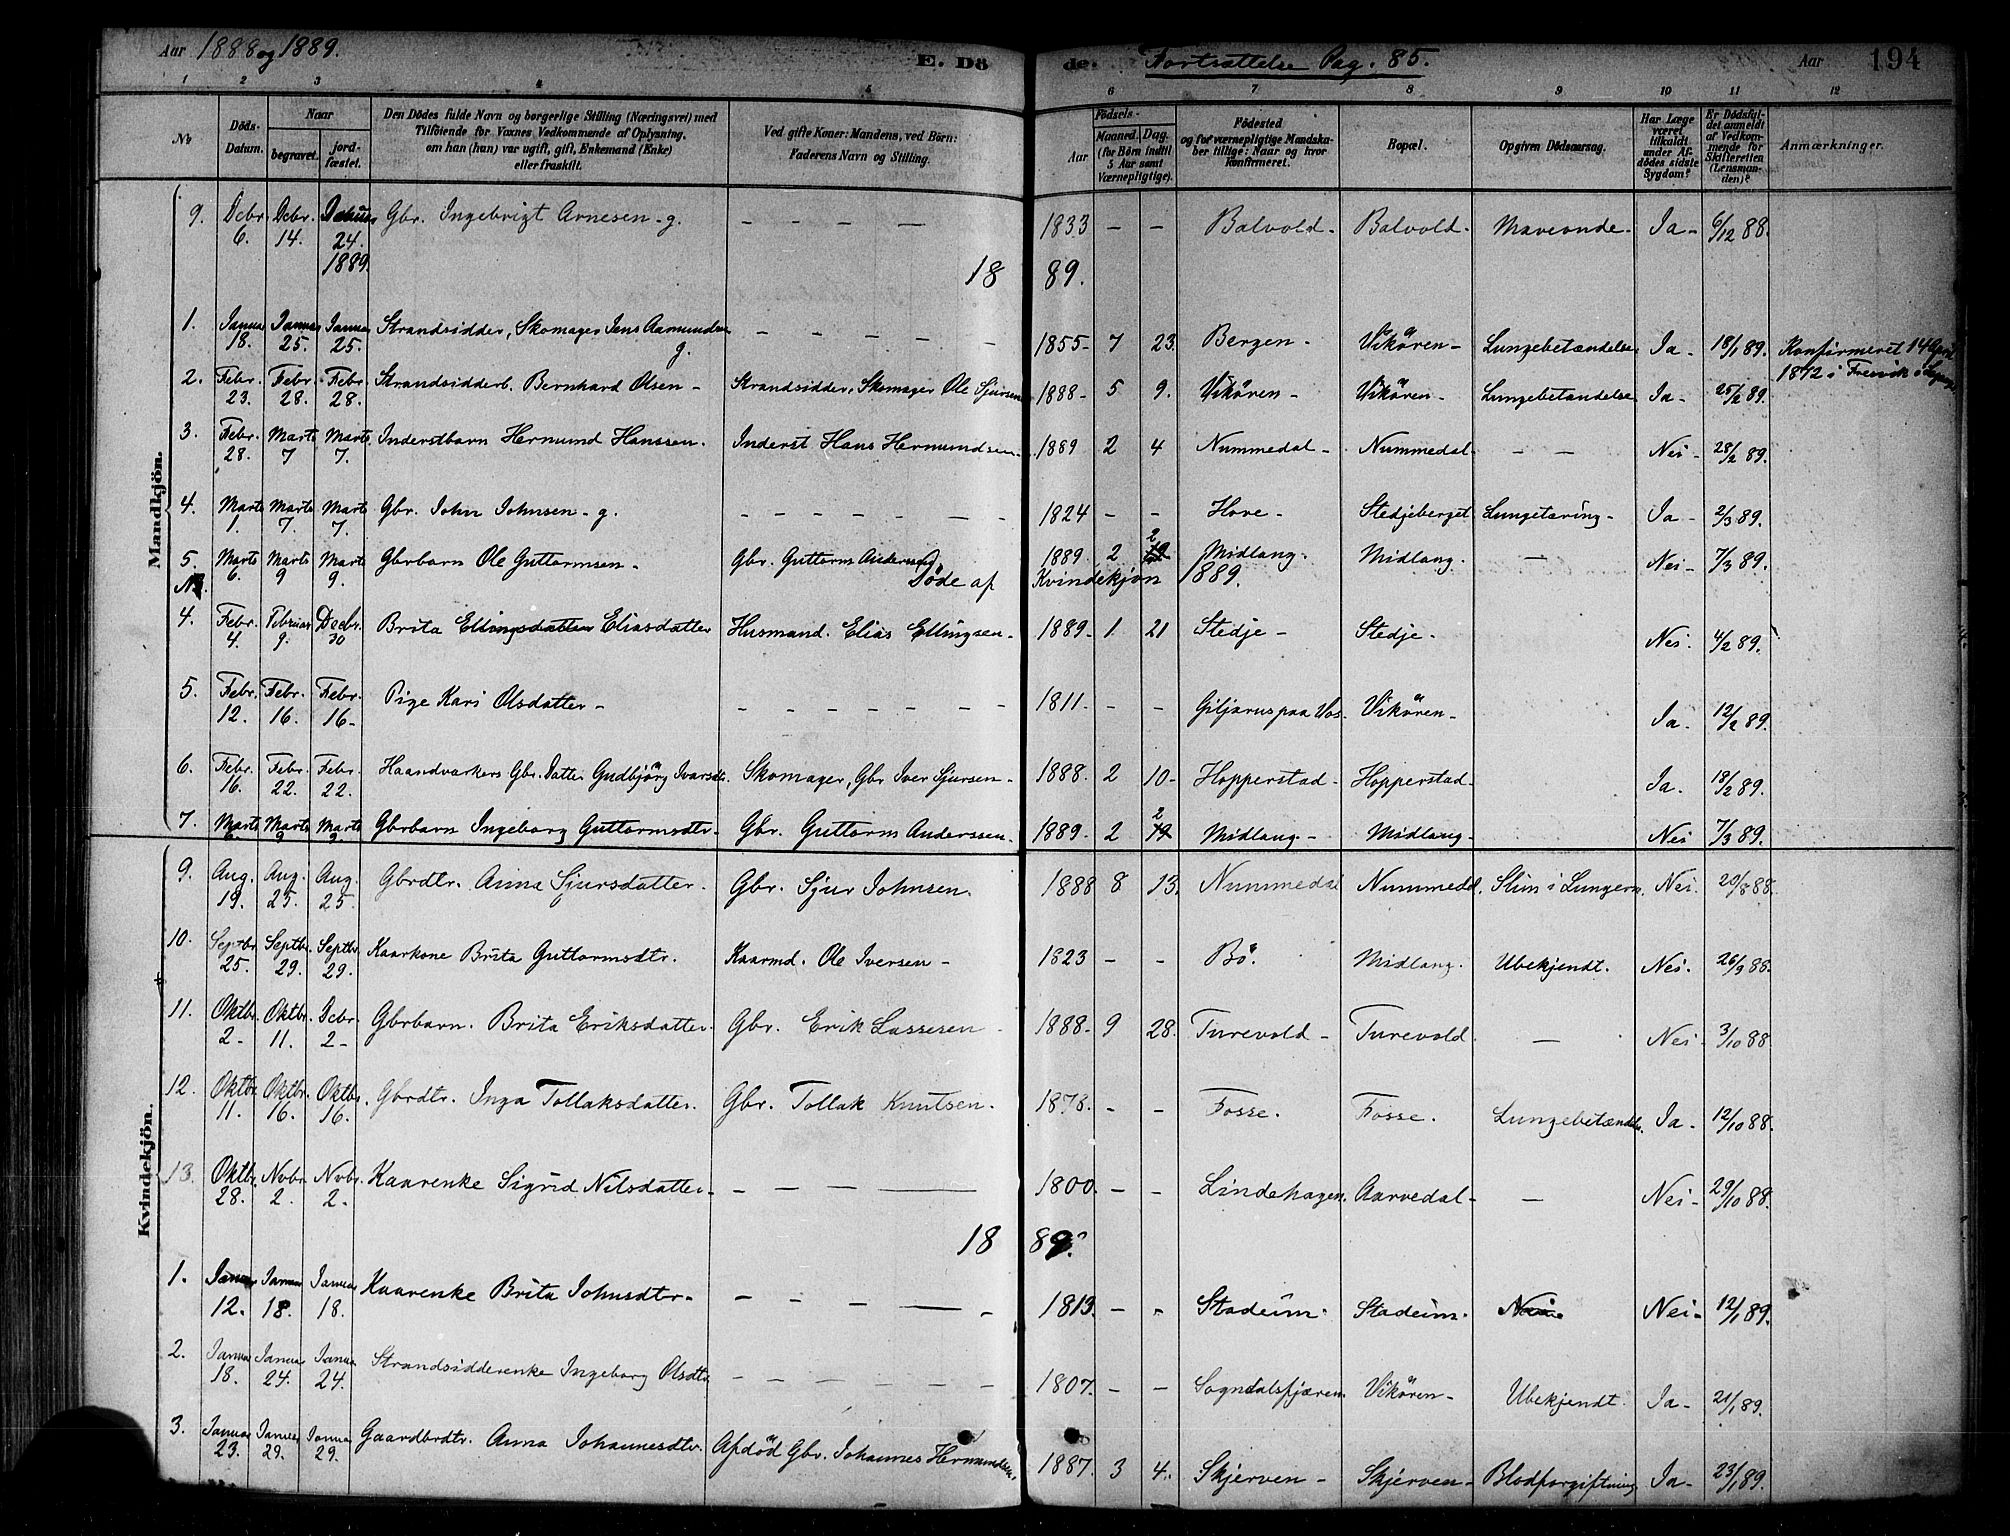 Aar 1888 og 1889. E. Döde. Fortsættelse Pag. 85. Aar 194
1 2 3 4 5 6 7 8 9 10 11 12
No. Döds-Datum. Naar begravet. jordfæstet. Den Dödes fulde Navn og borgerlige Stilling (Næringsvei) med Tilföiende for Voxnes Vedkommende af Oplysning, om han (hun) var ugift, gift, Enkemand (Enke) eller fraskilt. Ved gifte Koner: Mandens, ved Börn: Faderens Navn og Stilling. Födsels- Aar Maaned. Dag. (for Börn indtil 5 Aar samt Værnepligtige). Födested og for værnepligtige Mandskaber tillige: Naar og hvor konfirmeret. Bopæl. Opgiven Dödsaarsag. Har Læge været tilkaldt under Afdödes sidste Sygdom? Er Dödsfaldet anmeldt af Vedkommende for Skifteretten (Lensmanden)? Anmærkninger.
Mandkjön.
9. Debr. 6. Debr. 14. 24. 1889. Gbr. Ingebrigt Arnesen - g. — — — — 1833 — — Balvold - Balvold - Maveonde - Ja - 6/12 88.
1889.
1. Januar 18. Januar 25. Januar 25. Strandsidder, Skomager Jens Aamundsen g. — — — — 1855 - 7 23. Bergen - Vikören - Lungebetændelse Ja - 18/1 89. Konfirmeret 14 April 1872 i Fresvik i
2. Febr. 23. Febr. 28. Febr. 28. Strandsidderb. Bernhard Olsen - Strandsidder, Skomager Ole Sjursen 1888 - 5 9. Vikören - Vikören - Lungebetændelse Ja - 25/2 89.
3. Febr. 28. Marts 7 Marts 7. Inderstbarn Hermund Hanssen. Inderst Hans Hermundsen. 1889 2 4 Nummedal - Nummedal - — — Nei - 28/2 89.
4. Marts 1. Marts 7. Marts 7. Gbr. John Johnsen - g. — — — — 1824 — — Hove - Stedjeberget Lungetæring - Ja - 2/3 89.
5. Marts 6. Marts 9 Marts 9. Gbrbarn Ole Guttormsen - Gbr. Guttorm Andersen 1889 2 2 Midlang. Midlang. — Nei - 7/3 89.
Döde af Kvindekjön 1889.
4. Febr. 4. Februar 9. Decbr. 30 Brita Ellingsdatter Eliasdatter Husmand. Elias Ellingsen - 1889 - 1 21 Stedje - Stedje - Nei. 4/2 89.
5. Febr. 12. Febr. 16. Febr. 16 - Pige Kari Olsdatter - — — — — 1811 - — — Giljarus paa Vos - Vikören - Ja. 12/2 89.
6. Febr. 16. Febr. 22. Febr. 22. Haandværkers Gbr. Datter Gudbjörg Ivarsdt. Skomager, Gbr Iver Sjursen - 1888. 2 10 - Hopperstad - Hopperstad - Ja. 18/2 89.
7. Marts 6. Marts 9 Marts 9. Gbrbarn Ingeborg Guttormsdtr - Gbr. Guttorm Anderssen - 1889 - 2 2 Midlang - Midlang - Nei 7/3 89.
Kvindekjön.
9. Aug. 19. Aug. 25. Aug. 25. Gbrdtr. Anna Sjursdatter. Gbr. Sjur Johnsen. 1888 8 13. Nummedal Nummedal. Slim i Lungerne. Nei. 20/8 88.
10. Septbr 25. Septbr. 29. Septbr 29. Kaarkone Brita Guttormsdtr. Kaarmd. Ole Iversen - 1823 — — Bö. Midlang. Ubekjendt. Nei. 26/9 88.
11. Oktbr. 2 - Oktbr. 11. Debr. 2 - Gbrbarn. Brita Eriksdatter Gbr. Erik Lassesen - 1888 - 9 28. Turevold - Turevold. — Nei 3/10 88.
12. Oktbr. 11. Oktbr. 16. Oktbr. 16. Gbrdtr. Inga Tollaksdatter. Gbr. Tollak Knutsen. 1878. — — Fosse. Fosse. Lungebetændelse. Ja - 12/10 88.
13. Oktbr. 28. Novbr. 2. Novbr. 2 - Kaarenke Sigrid Nilsdatter - — — — — 1800. — — Lindehagen. Aarvedal - — Nei - 29/10 88.
1889.
1. Januar 12. Januar 18. Januar 18. Kaarenke Brita Johnsdtr - — — — — 1813. — — Stadeim - Stadeim - Nei - 12/1 89.
2. Januar 18. Januar 24. Januar 24. Strandsidderenke Ingeborg Olsdtr — — — — 1807. — — Sogndalsfjæren Vikören - Ubekjendt. Ja - 21/1 89.
3. Januar 23. Januar 29. Januar 29. Gaardbrdtr. Anna Johannesdtr. Afdöd Gbr. Johannes Hermundsen. 1887. 3 4. Skjerven - Skjerven - Blodforgiftning Ja - 23/1 89.